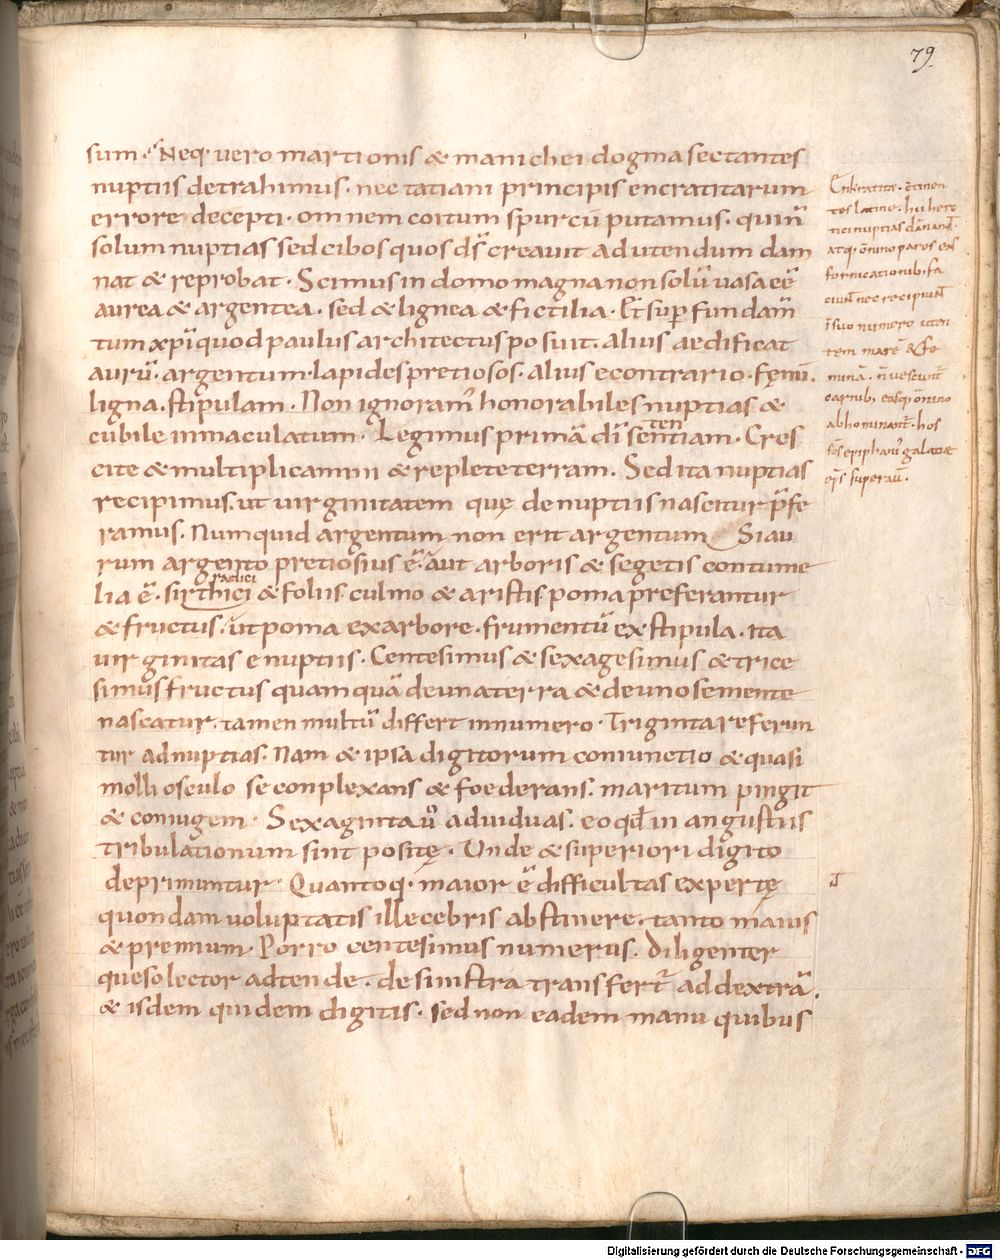 79.
sum· Neq· uero martionis & manichei dogma sectantes
nuptiis detrahimus· nec tatiani principis encratitarum
errore decepti· omnem coitum spurcū putamus· qui n̄
solum nuptias sed cibos quos d̄s creauit ad utendum dam
nat & reprobat· Scimus in domo magna non solū uasa eē
aurea & argentea· sed & lignea & fictilia· Et sup̱ fundam̄
tum xp̄i quod paulus architectus posuit· alius aedificat
aurū· argentum· lapides pretiosos· alius econtrario· fęnū·
ligna· stipulam· Non ignoram᾽ honorabiles nuptias &
cubile inmaculatum· Legimus primā dī sententiam· Cres
cite & multiplicamini & replete terram· Sed ita nuptias
recipimus· ut uirginitatem quę de nuptiis nascitur p̄fe
ramus· Numquid argentum non erit argentum Si au
rum argento pretiosius ē· aut arboris & segetis contume
lia ē· si radici & foliis· culmo & aristis poma preferantur
& fructus· ut poma ex arbore· frumentū ex stipula· ita
uirginitas e nuptiis· Centesimus & sexagesimus & trice
simus fructus quamquā de una terra & de uno semente
nascatur· tamen multū differt in numero· Triginta referun
tur ad nuptias· Nam & ipsa digitorum coniunctio & quasi
molli osculo se conplexans & foederans· maritum pingit
& coniugem· Sexaginta ū ad uiduas· eo qđ in angustiis
tribulationum sint positę· Unde & superiori digito
deprimuntur· Quantoq· maior ē difficultas expertę
quondam uoluptatis illecebris abstinere· tanto maius
& premium· Porro centesimus numerus· Diligenter
queso lector adtende· de sinistra transfert᷑ ad dextrā·
& isdem quidem digitis· sed non eadem manu quibus
Enkratitae· c̄tinen
tes latine· hii here
tici nuptias dānant
atq· ōmino pares eas
fornicationib· fa
ciunt nec recipiunt
ī suo numero uten
tem marē & fe
minā· n̄ uescunt᷑
carnib· easq· ōmino
abhominant᷑· hos
galatiae